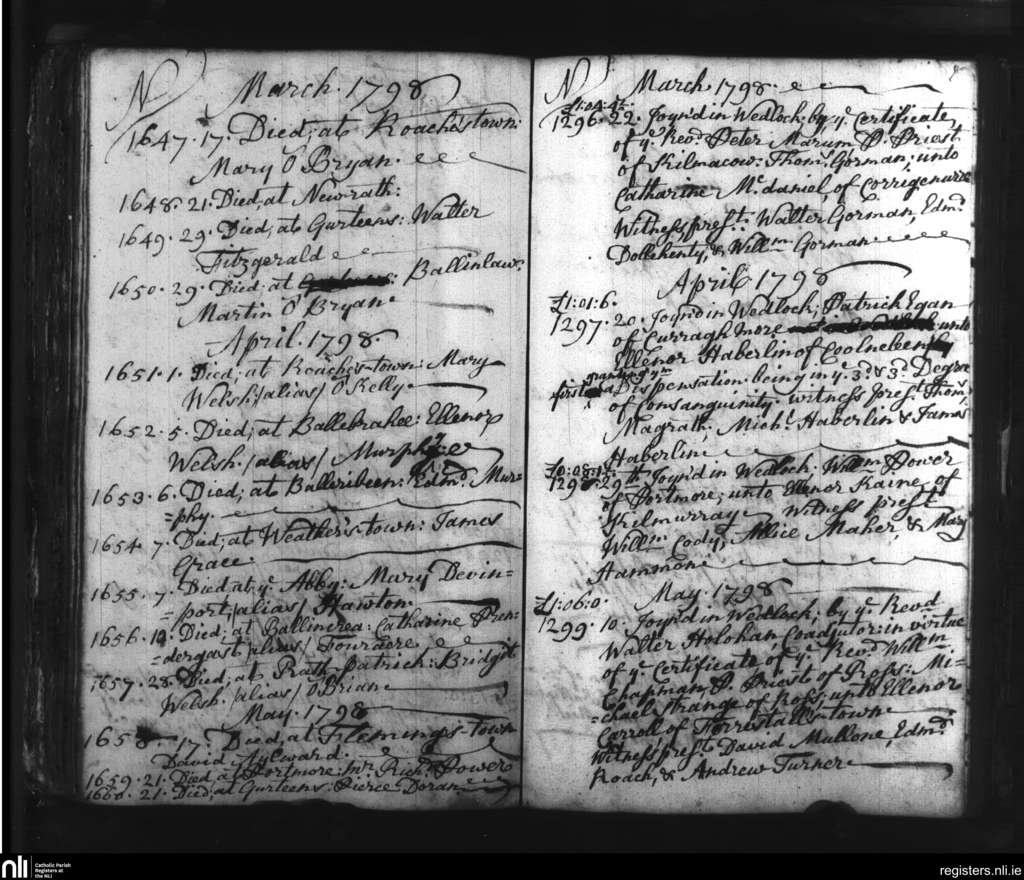 N March. 1798
1647. 17. Died, at Roachestown:
Mary O'Bryan.
1648. 21. Died, at Newrath:
1649. 29. Died, at Gurteens: Walter
Fitzgerald
1650. 29. Died at Ballinlaw:
Martin O'Bryan
April. 1798.
1651. 1. Died, at Roaches-town: Mary
Welsh /alias/ O'Kelly
1652. 5. Died, at Ballebrahee: Ellenor
Welsh /alias/ Murphy
1653. 6. Died, at Balleribeen: Edmd. Mur=
=phy.
1654. 7. Died, at Weathers-town: James
Grace
1655. 7. Died, at ye. Abby: Mary Devin=
=port /alias/ Hawton
1656. Died, at Ballincrea: Catharine Pren=
=dergast /alias/
1657. 28. Died, at Rath-patrick: Bridgit
Welsh /alias/ O'Brian
May. 1798
1658. 17. Died, at Flemings-town
David Aylward.
1659. 21. Died, at Portmore: Mr. Richd. Power
1660. 21. Died, at Gurteens: Pierce Doran
N March 1798.
£1:04:4½.
1296. 22. Joyn'd in Wedlock, by ye. Certificate
of ye. Revd. Peter Marum P. Priest
of Kilmacow: Thoms. Gorman; unto
Catharine Mc.daniel, of Corrigenurra
Witness, prest. Walter Gorman, Edmd.
Dollehenty, & Willm. Gorman
April 1798
£1:01:6.
1297. 20. Joyn'd in Wedlock; Patrick Egan
of Curraghmore unto
Ellenor Haberlin of Coolnebeen
first granting ym
a Dispensation being in ye. 3d. & 3d. Degree
of Consanguinity. witness prest. Thoms.
Magrath, Michl. Haberlin & James
Haberlin
£0:08:1½.
1298. 29th. Joyn'd in Wedlock. Willm. Power
of Portmore; unto Ellenor Kaine, of
Kilmurray. Witness prest
Willm. Cody, Allice Maher, & Mary
Hammon
May. 1798
£1:06:0.
1299. 10. Joyn'd in Wedlock, by ye. Revd
Walter Holohan Coadjutor: in virtue
of ye. Certificate of ye. Revd. Willm
Chapman, P. Priest of Ross: Mi=
=chael Strange of Ross, unto Ellenor
Carroll of Forrestalls-town
Witness prest. David Mullone, Edmd.
Roach, & Andrew Turner
nli Catholic Parish
Registers at
the NLI
registers.nli.ie